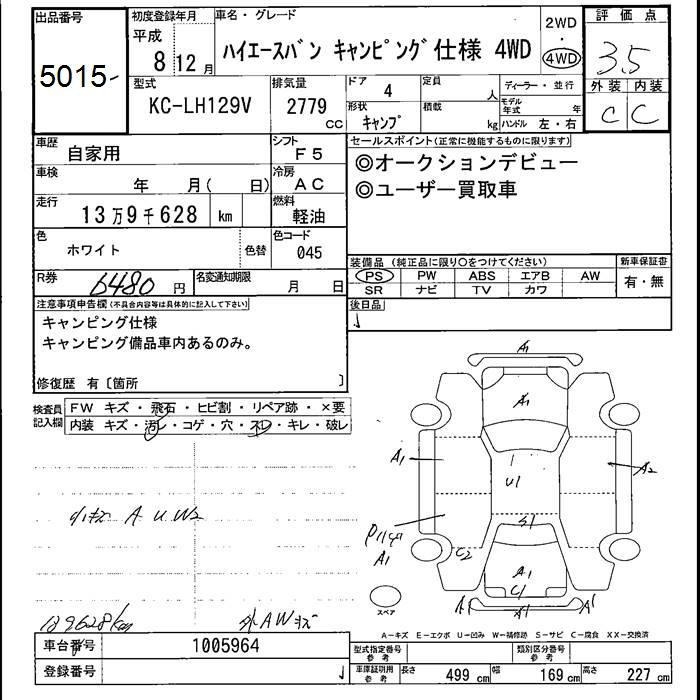 出品番号
5015-
初度登録年月
平成
8 12月
車名・グレード
ハイエースバン キャンピング仕様 4WD
2WD
・
4WD
評価点
3.5
外装 内装
C C
型式
KC-LH129V
排気量
2779
CC
ドア 4
形状 キャンプ
定員 人
積載 kg
ディーラー・並行
モデル年式 年
ハンドル 左・右
車歴
自家用
シフト
F5
車検
年 月( 日)
冷房
AC
走行
13万9千628 km
燃料
軽油
色
ホワイト
色替
色コード
045
セールスポイント(正常に機能するものに限ります)
◎オークションデビュー
◎ユーザー買取車
装備品(純正品に限り○をつけてください)
新車保証書
PS PW ABS エアB AW
SR ナビ TV カワ
有・無
R券
6480円
名変通知期限
月 日
後日品
注意事項申告欄(不具合内容等は具体的に記入して下さい)
キャンピング仕様
キャンピング備品車内あるのみ。
修復歴 有〔箇所 〕
検査員記入欄
FW キズ・飛石・ヒビ割・リペア跡・×要
内装 キズ・汚レ・コゲ・穴・スレ・キレ・破レ
小キズ A U W2
139628km
外AWキズ
A1
A1
A1
A2
U1
S1
A1
C2
A1
C1
A1
A1
A1
スペア
A-キズ E-エクボ U-凹み W-補修跡 S-サビ C-腐食 XX-交換済
車台番号
1005964
登録番号
型式指定番号
参考
類別区分番号
参考
車庫証明用
参考
長さ 499 cm 幅 169 cm 高さ 227 cm